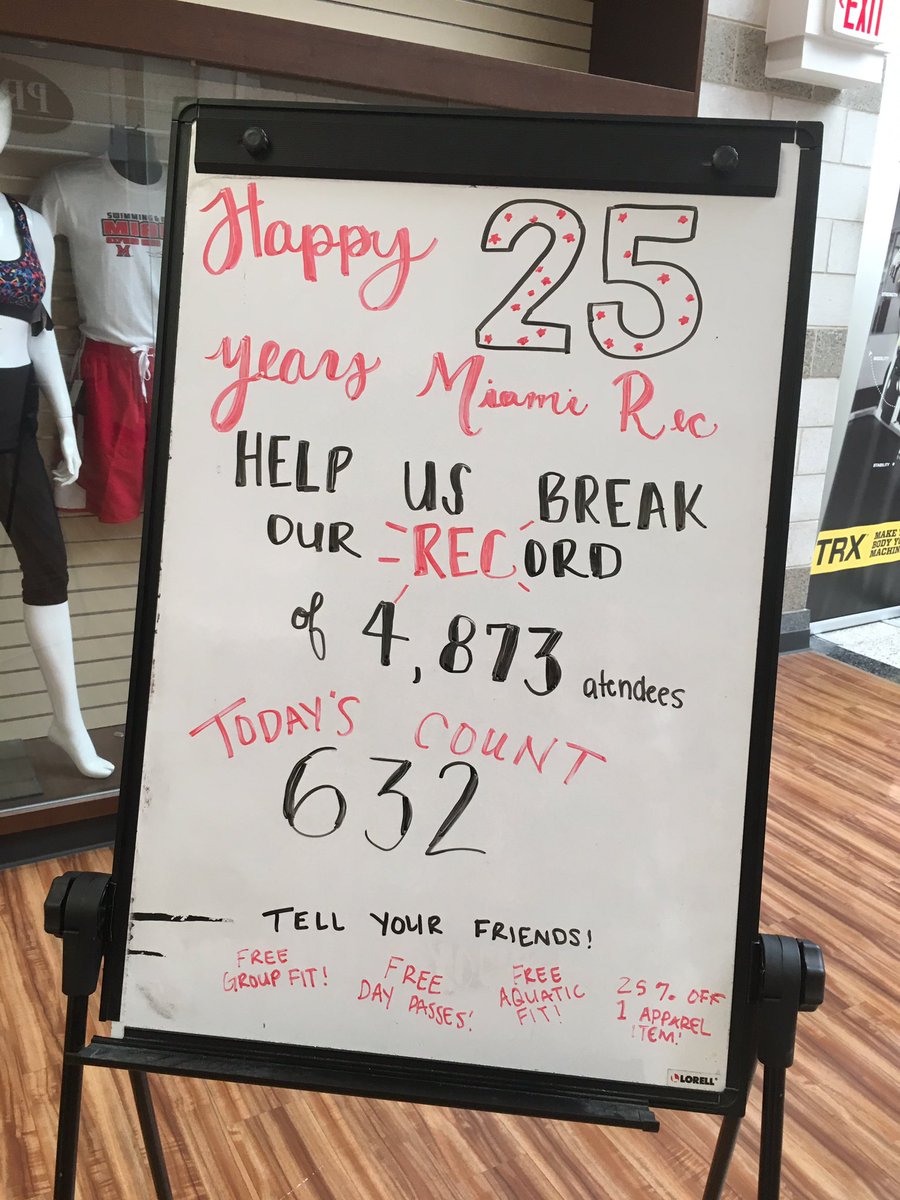 Happy 25
years Miami Rec
HELP US BREAK
OUR RECORD
of 4,873 atendees
TODAY'S COUNT
632
TELL YOUR FRIENDS!
FREE
GROUP FIT!
FREE
DAY PASSES!
FREE
AQUATIC
FIT!
25% OFF
1 APPAREL
ITEM!
LORELL
EXIT
SWIMMING &
MIAMI
M
TRX
MAKE
BODY YO
MACHIN
MOBILITY
STABILITY